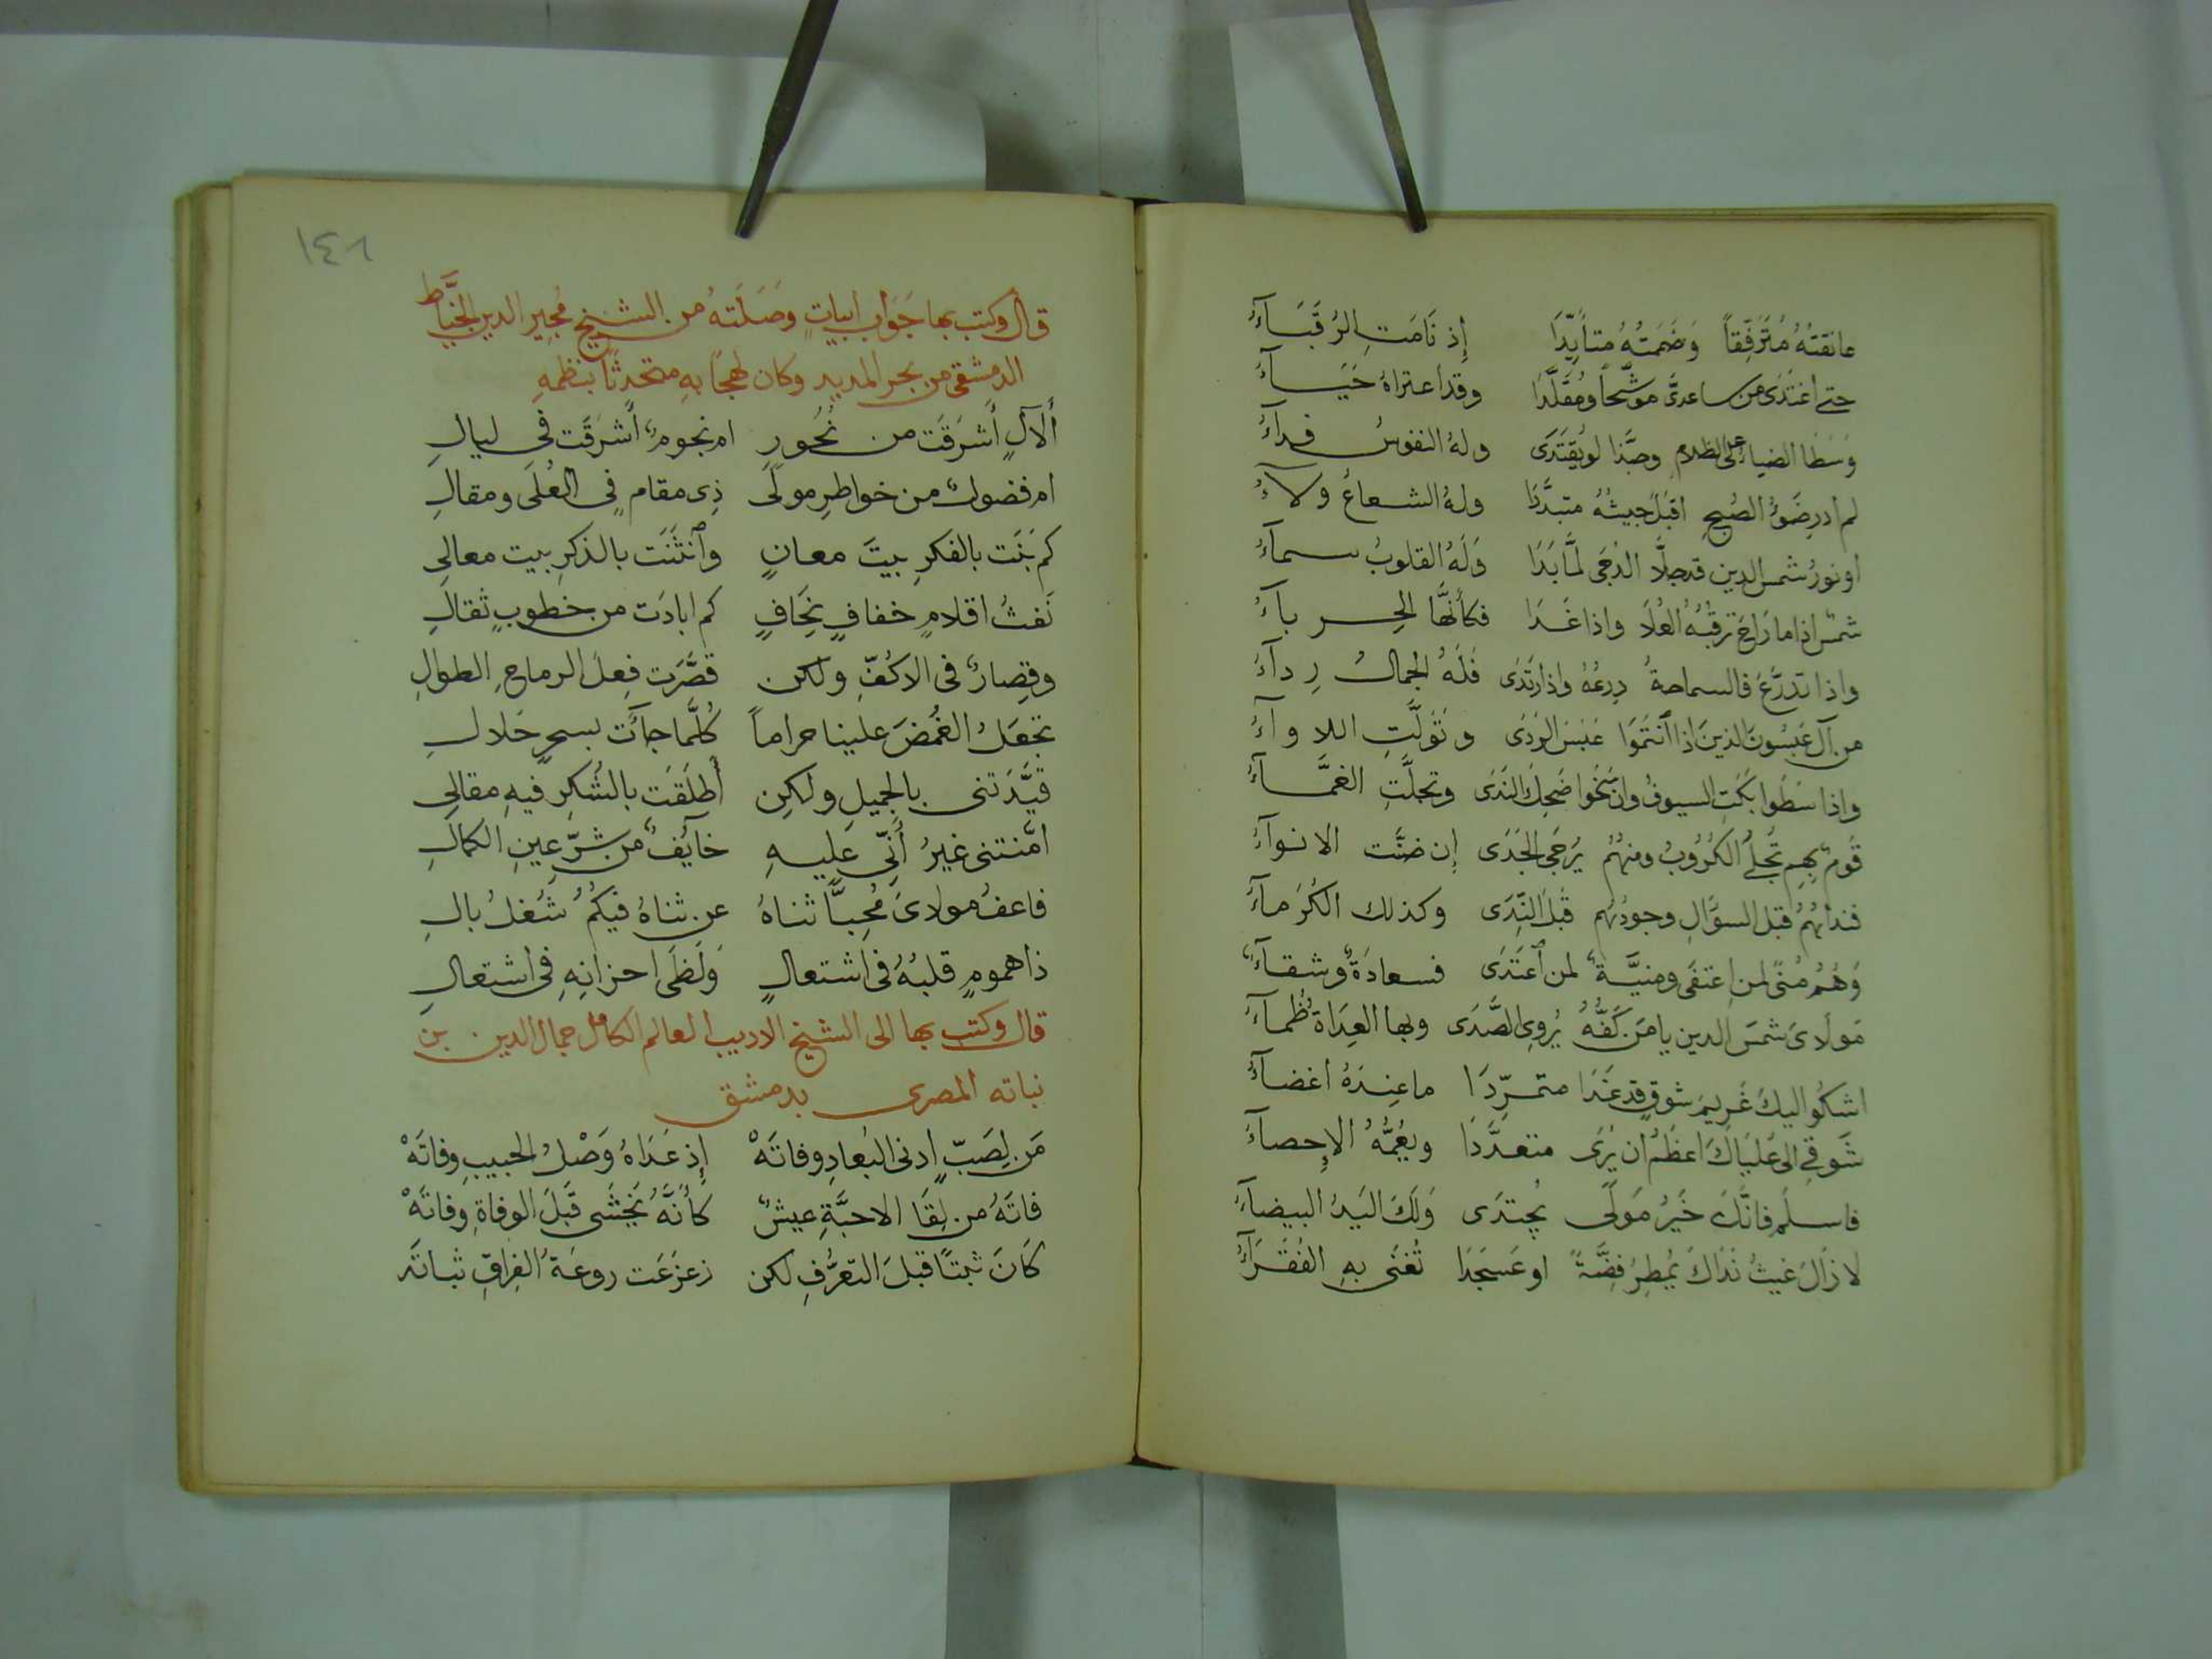 عانقتهُ مُترَفِّقاً وَضَممتُهُ متأيِّدَا إِذ نَامَتِ الرُقَبَاءُ
حتى اغتَدَى من ساعدىَّ موَشَّحاً ومُقَلَّدَا وقد اعتراهُ حَيَاءُ
وَسَطَا الضياءِ على الظلامِ وحبَّذا لو يُفتَدَى ولهُ النفوسُ فداءُ
لم ادرِ ضَوءُ الصُبحِ اقبلَ جيشُهُ متبدَّدَا ولهُ الشعاعُ ولآءُ
او نورُ شمس الدين قد جلَّا الدُجَى لمَّا بَدَا وَلَهُ القلوبُ سماءُ
شمسٌ اذا ما رَاحَ تَرقبُهُ العُلَا واذا غَدَا فكأنَّهَا الحِرباءُ
واذا تَدَرَّعَ فالسماحةُ دِرعُهُ واذا ارتَدَى فَلَهُ الجمالُ رِدآءُ
من آلِ عَبسُونَ الذينَ اذا اَنتَمَوا عَبَسَ الرَدَى وتَوَلَّتِ اللاوآءُ
واذا سَطَوا بَكَتِ السيوفُ وان سَخَوا ضَحِكَ النَدَى وتجلَّتِ الغمَّآءُ
قَومٌ بِهِم تُجلَى الكُرُوبُ ومنهُمُ يُرجَى الجَدَى إن ضنَّت الانوآءُ
فنداهُمُ قبل السؤَالِ وجودُهُم قَبلَ النِّدَى وكذلك الكُرَمآءُ
وَهُمُ مُنىً لمن اعتَفَى ومنيَّةٌ لمن اَعتَدَى فسعادَةٌ وشقآءٌ
مَولَاىَ شمسَ الدين يا مَن كَفُّهُ يُروِى الصَّدَى وبها العِدَاةُ ظُمآءُ
اشكُو اليكَ غَرِيمَ شوقٍ قد غَدَا متمرِّدَا ما عِندَهُ اغضآءُ
شَوقِى الى عَليَاكَ اعظَمُ ان يُرَى متعدَّدَا ويَعُمُّهُ الإِحصآءُ
فاسلم فانَّكَ خَيرُ مَولًى يُجتدَى وَلَكَ اليَدُ البيضآءُ
لا زَالَ غيثُ نَدَاكَ يُمطِرُ فِضَّةً او عَسجَدَا تُغنَى بهِ الفُقَرَآءُ
١٤٦
قال وكتب بها جَوَاب ابياتٍ وصَلَتهُ من الشيخ مُجيرِ الدين الخيَّاط
الدمشقى من بحر المديد وكان لهجاً بهِ متحدثاً بنظمهِ
أَلآلٍ أَشرَقَت من نُحُورِ ام نجومٌ أَشرَقَت فى ليالِ
ام فضولٌ من خواطرِ مولًى ذِى مقامٍ فى العُلَى ومقالِ
كم بَنَت بالفكرِ بيتَ معانٍ وأَنثَنَت بالذكرِ بيت معالِى
نَفثُ اقلامٍ خفافٍ نِحَافٍ كم ابادَت من خطوبٍ ثِقالِ
وقِصارٌ فى الاكُفِّ ولكن قصَّرَت فِعلَ الرماحِ الطوالِ
تجعَلُ الغُمضَ علينا حراماً كُلَّما جآءَت بسحرٍ حَلالِ
قيَّدَتنى بالجميلِ ولكِن أَطلَقَت بالشُكرِ فيهِ مقالِى
امَّنتنى غيرُ أَنِّى عليهِ خآيفٌ من شرِّ عينِ الكمالِ
فاعفُ مولاىَ مُحِبًّا ثناهُ عن ثناهُ فيكُمُ شُغلُ بالِ
ذا همومٍ قلبُهُ فى اشتعالٍ وَلَظَى احزانِهِ فى اشتعالِ
قال وكتب بها الى الشيخ الاديب العالم الكامل جمال الدين بن
نباته المصرى بدمشق
مَن لِصَبٍّ ادنى البُعادِ وفاتَهْ إِذ عَدَاهُ وَصْلُ الحبيبِ وفاتَهْ
فاتَهُ من لِقَا الاحبَّةِ عيشٌ كأنَّهُ يَخشَى قَبلَ الوفاةِ وفاتَهْ
كَانَ ثَبتًا قبلَ التعرُّفِ لكن زعزَعَت روعَةُ الفِراقِ ثباتَه